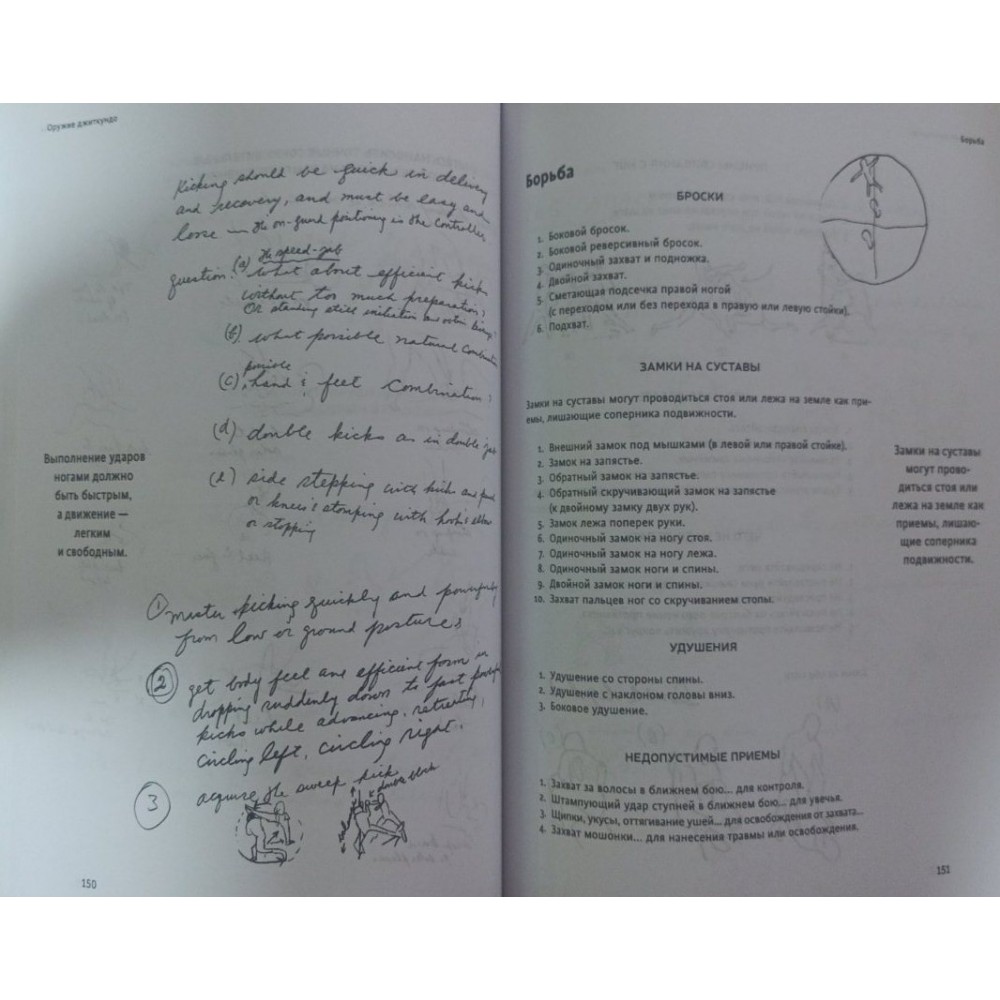 Оружие джиткундо
Kicking should be quick in delivery
and recovery, and must be easy and
loose — the on-guard positioning is the controller,
(a) the speed-jab
question: what about efficient kick
without too much preparation,
Or standing still initiation
(b) what possible natural combination
possible
(c), hand & feet combination;
(d) double kicks as in double jab
(e) side stepping with kicks and
or knees & stomping with hooks elbow
or stopping
Выполнение ударов
ногами должно
быть быстрым,
а движение —
легким
и свободным.
① master kicking quickly and powerfully
from low or ground postures
② get body feel and efficient form in
dropping suddenly down to fast
kicks while advancing, retreating,
circling left, circling right.
③ acquire the sweep kick
150
Борьба
Борьба
БРОСКИ
1. Боковой бросок.
2. Боковой реверсивный бросок.
3. Одиночный захват и подножка.
4. Двойной захват.
5. Сметающая подсечка правой ногой
(с переходом или без перехода в правую или левую стойки).
6. Подхват.
ЗАМКИ НА СУСТАВЫ
Замки на суставы могут проводиться стоя или лежа на земле как при-
емы, лишающие соперника подвижности.
1. Внешний замок под мышками (в левой или правой стойке).
2. Замок на запястье.
3. Обратный замок на запястье.
4. Обратный скручивающий замок на запястье
(к двойному замку двух рук).
5. Замок лежа поперек руки.
6. Одиночный замок на ногу стоя.
7. Одиночный замок на ногу лежа.
8. Одиночный замок ноги и спины.
9. Двойной замок ноги и спины.
10. Захват пальцев ног со скручиванием стопы.
Замки на суставы
могут прово-
диться стоя или
лежа на земле как
приемы, лишаю-
щие соперника
подвижности.
УДУШЕНИЯ
1. Удушение со стороны спины.
2. Удушение с наклоном головы вниз.
3. Боковое удушение.
НЕДОПУСТИМЫЕ ПРИЕМЫ
1. Захват за волосы в ближнем бою... для контроля.
2. Штампующий удар ступней в ближнем бою... для увечья.
3. Щипки, укусы, оттягивание ушей... для освобождения от захвата...
4. Захват мошонки... для нанесения травмы или освобождения.
151